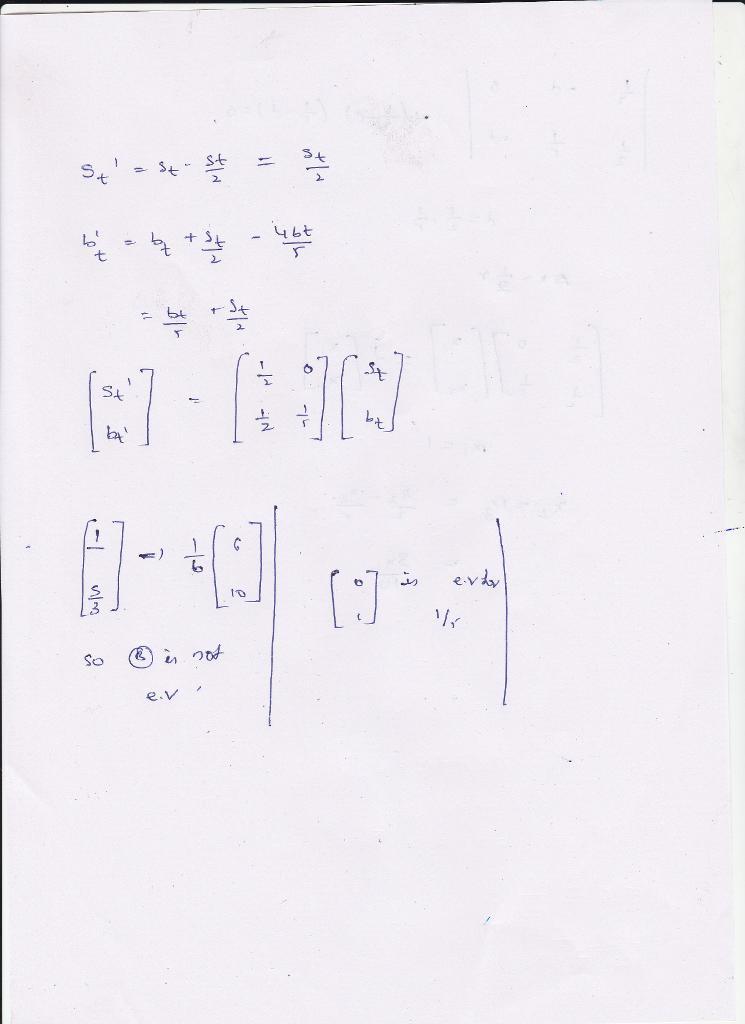 St' = St - St/2 = St/2
b't = bt + St/2 - 4bt/5
= bt/5 + St/2
[St' bt'] = [1/2 0 1/2 1/5] [St bt]
[1 5/3] => 1/6 [6 10]
so Ⓑ is not
e.v
[0 1] is e.v for
1/5